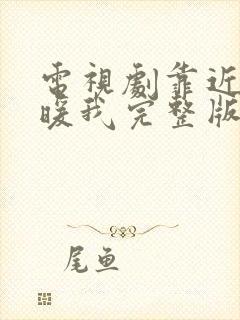 電視劇靠近
暖我完整版
尾魚